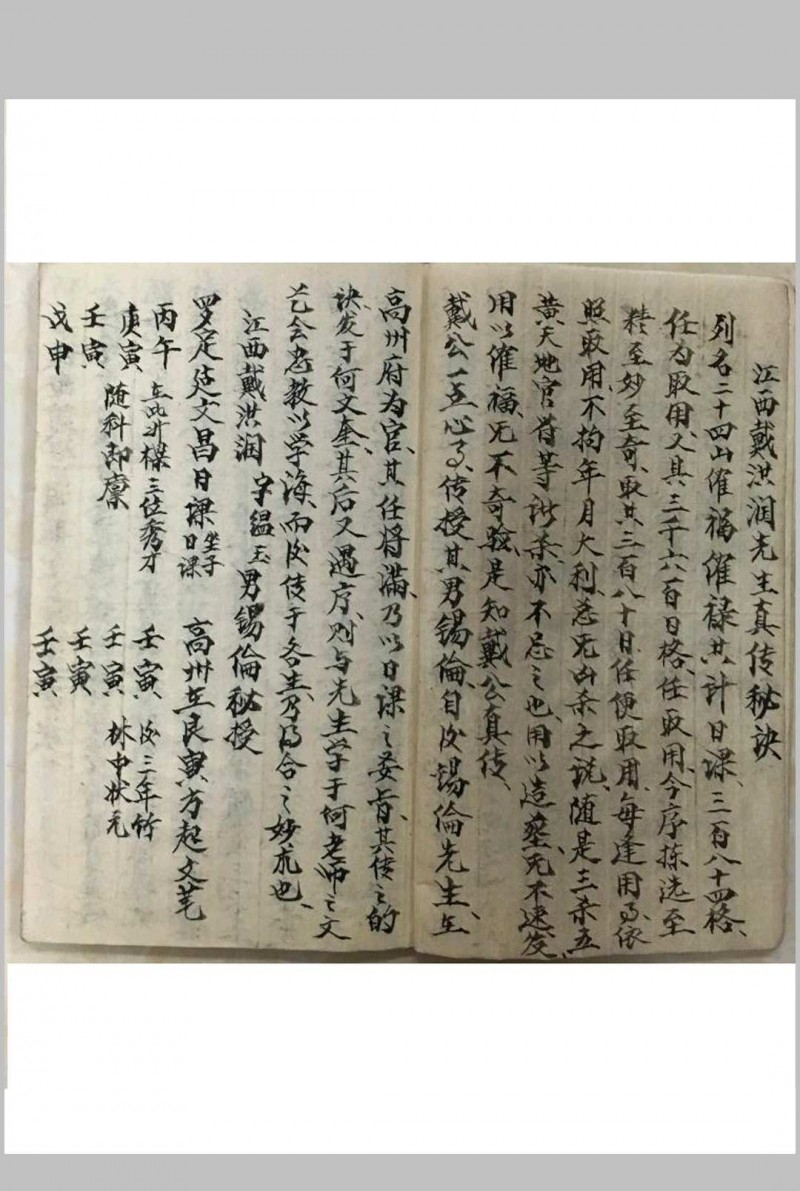 江西戴洪润先生真传秘诀
列名二十四山催福催禄共计日课、三百八十四格、
任为取用、又其三千六百日格、任取用、今序拣选至
精至妙至奇、取其三百八十日任便取用、每逢用了、依
照取用、不拘年月大利、总无凶杀之说、随是三杀五
黄天地官符等诸杀、亦不忌之也、用以造葬、无不速发、
用以催福、无不奇验、是知戴公真传、
戴公一生心了、传授其男锡伦、自后锡伦先生、在
高州府为官、其任将满、乃以日课之要旨、其传之的
诀发于何文奎、其后又遇序、则与先生学于何老师之文
艺会、忠教以学海、而后传于各生、乃得合之妙术也、
江西戴洪润 字缊玉 男锡伦秘授
罗定建文昌日课 坐子日课
丙午
庚寅
壬寅
戊申
在此升樑三位秀才
随科即廪
高州在艮寅方起文笔
壬寅
壬寅
壬寅
壬寅
后三年竹
林中状元